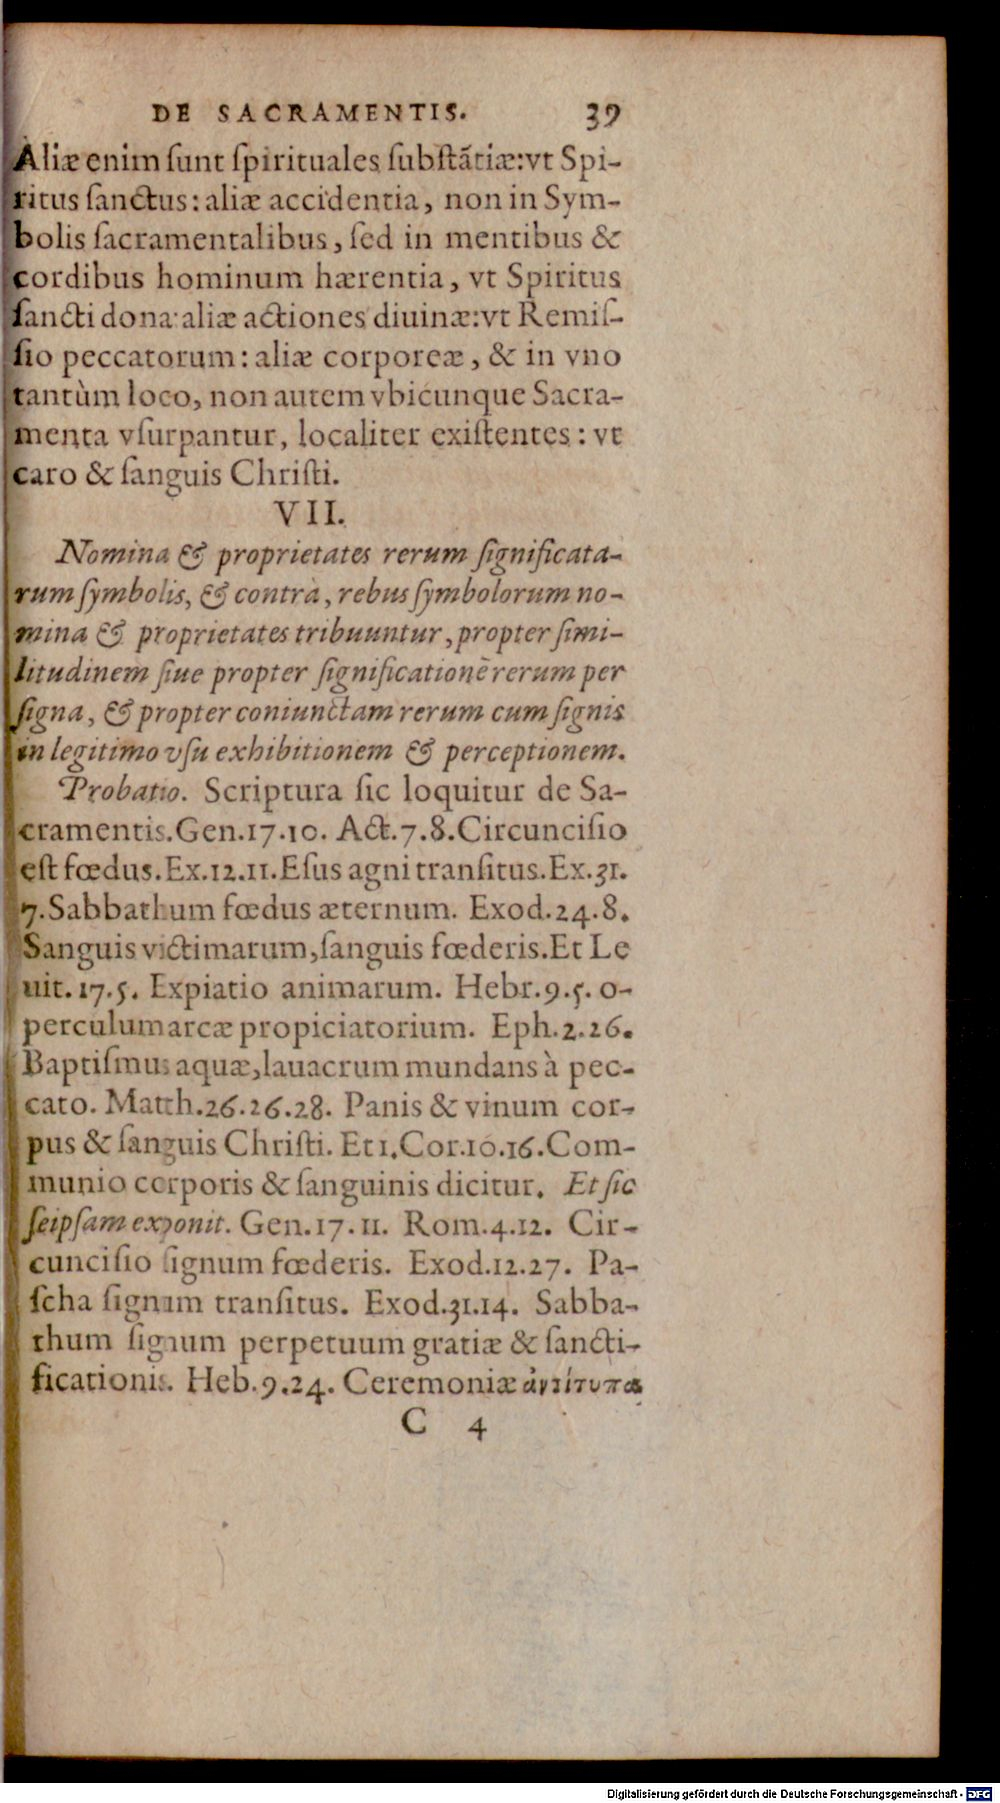 DE SACRAMENTIS. 39
Aliæ enim ſunt ſpirituales ſubſtãtiæ:vt Spi-
ritus ſanctus: aliæ accidentia, non in Sym-
bolis ſacramentalibus, ſed in mentibus &
cordibus hominum hærentia, vt Spiritus
ſancti dona: aliæ actiones diuinæ:vt Remiſ-
ſio peccatorum: aliæ corporeæ, & in vno
tantùm loco, non autem vbicunque Sacra-
menta vſurpantur, localiter exiſtentes: vt
caro & ſanguis Chriſti.
VII.
Nomina & proprietates rerum ſignificata-
rum ſymbolis, & contrà, rebus ſymbolorum no-
mina & proprietates tribuuntur, propter ſimi-
litudinem ſiue propter ſignificationē rerum per
ſigna, & propter coniunctam rerum cum ſignis
in legitimo vſu exhibitionem & perceptionem.
Probatio. Scriptura ſic loquitur de Sa-
cramentis.Gen.17.10. Act.7.8.Circunciſio
eſt fœdus.Ex.12.11.Eſus agni tranſitus.Ex.31.
7.Sabbathum fœdus æternum. Exod.24.8.
Sanguis victimarum,ſanguis fœderis.Et Le
uit.17.5. Expiatio animarum. Hebr.9.5. o-
perculum arcæ propiciatorium. Eph.2.26.
Baptiſmus aquæ,lauacrum mundans à pec-
cato. Matth.26.26.28. Panis & vinum cor-
pus & ſanguis Chriſti. Et 1.Cor.10.16.Com-
munio corporis & ſanguinis dicitur. Et ſic
ſeipſam exponit. Gen.17.11. Rom.4.12. Cir-
cunciſio ſignum fœderis. Exod.12.27. Pa-
ſcha ſignum tranſitus. Exod.31.14. Sabba-
thum ſignum perpetuum gratiæ & ſancti-
ficationis. Heb.9.24. Ceremoniæ ἀντίτυπα
C 4
Digitalisierung gefördert durch die Deutsche Forschungsgemeinschaft - DFG